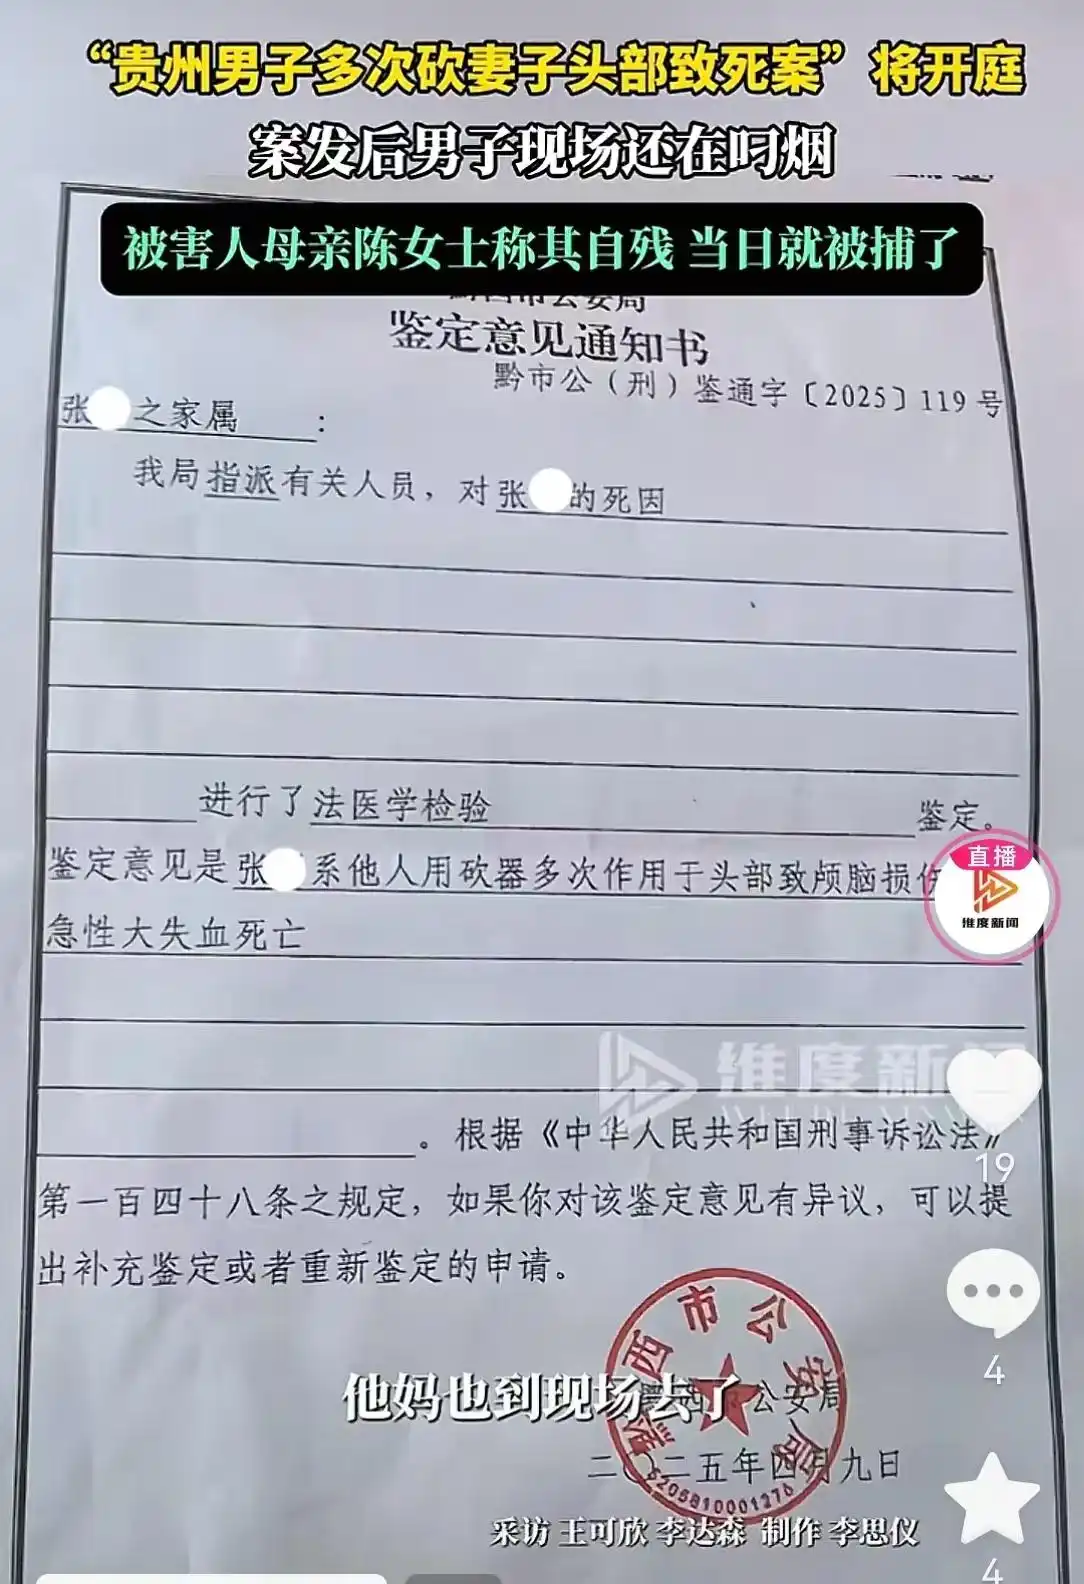 “贵州男子多次砍妻子头部致死案”将开庭
案发后男子现场还在叼烟
被害人母亲陈女士称其自残 当日就被捕了
黔西市公安局
鉴定意见通知书
黔市公（刑）鉴通字〔2025〕119号
张 之家属 ：
我局指派有关人员，对张 的死因
进行了法医学检验 鉴定。
鉴定意见是张 系他人用砍器多次作用于头部致颅脑损伤
急性大失血死亡
直播
维度新闻
维度新闻
。根据《中华人民共和国刑事诉讼法》
19
第一百四十八条之规定，如果你对该鉴定意见有异议，可以提
出补充鉴定或者重新鉴定的申请。
黔西市公安局
4
他妈也到现场去了
黔西市公安局
二〇二五年四月九日
5205810001276
采访 王可欣 李达森 制作 李思仪
4